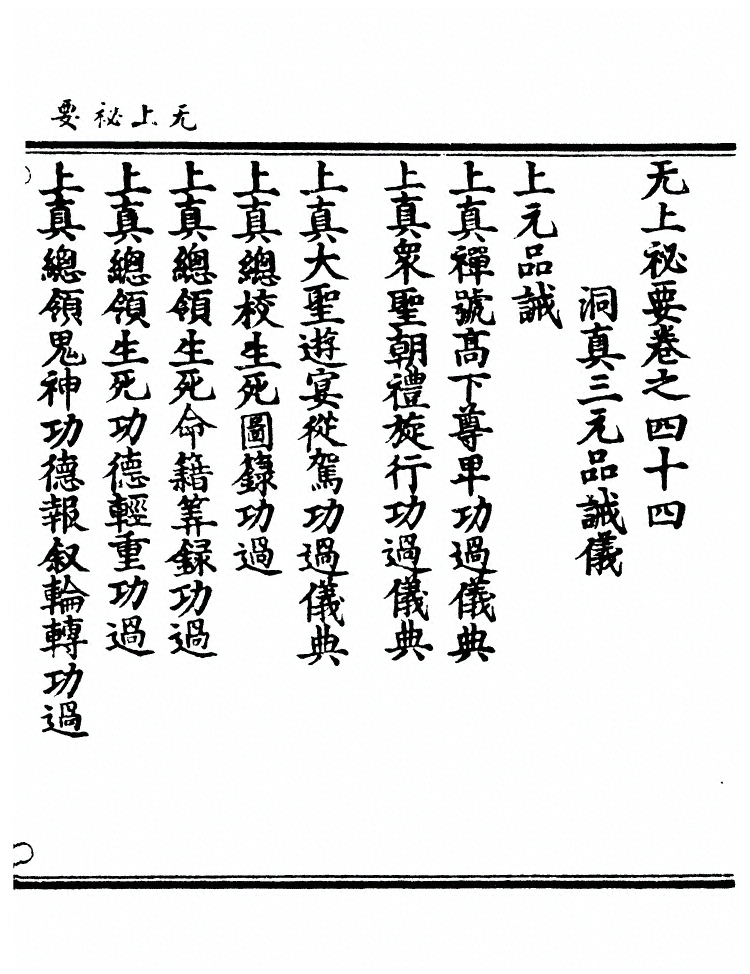 无上祕要
无上祕要卷之四十四
洞真三元品誡儀
上元品誡
上真禪號高下尊卑功過儀典
上真衆聖朝禮旋行功過儀典
上真大聖遊宴從駕功過儀典
上真總校生死圖籙功過
上真總領生死命籍筭録功過
上真總領生死功德輕重功過
上真總領鬼神功德報叙輪轉功過